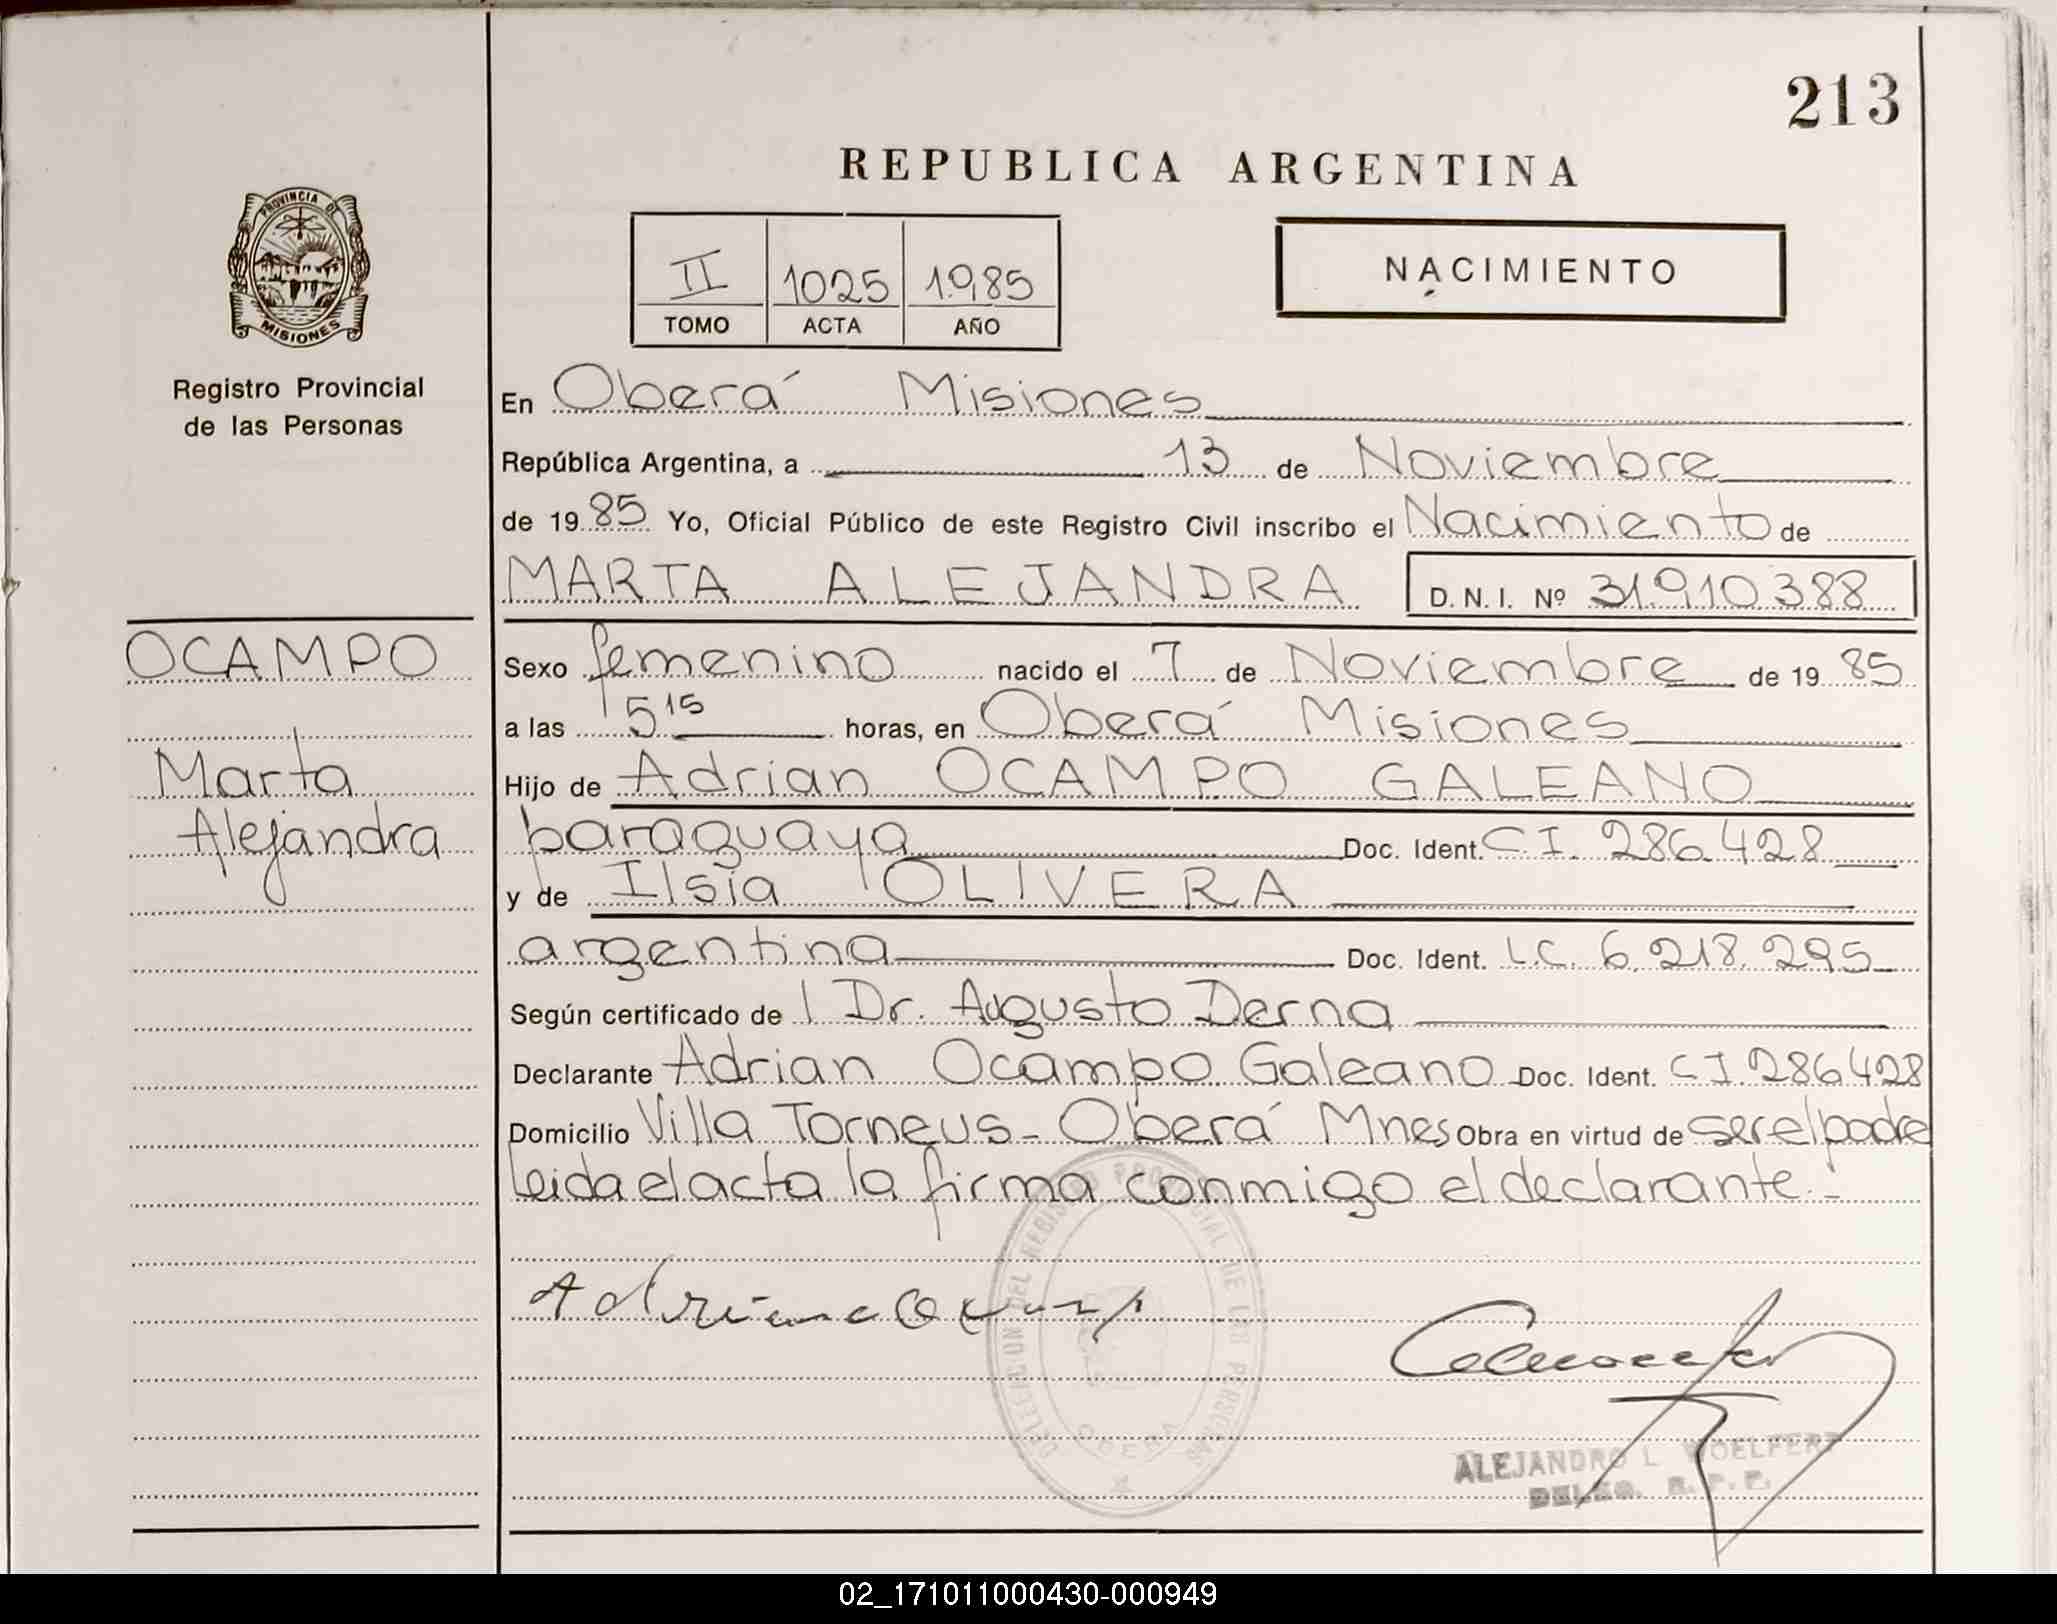 213
REPUBLICA ARGENTINA
PROVINCIA DE
MISIONES
Registro Provincial
de las Personas
II 1025 1985
TOMO ACTA AÑO
NACIMIENTO
En Oberá Misiones
República Argentina, a 13 de Noviembre
de 1985 Yo, Oficial Público de este Registro Civil inscribo el Nacimiento de
MARTA ALEJANDRA D.N.I. Nº 31.910.388
OCAMPO
Marta
Alejandra
Sexo femenino nacido el 7 de Noviembre de 1985
a las 5 15 horas, en Oberá Misiones
Hijo de Adrian OCAMPO GALEANO
paraguaya Doc. Ident. C I. 286.428
y de Ilsia OLIVERA
argentina Doc. Ident. L.C. 6.218.295
Según certificado de Dr. Augusto Derna
Declarante Adrian Ocampo Galeano Doc. Ident. C I. 286428
Domicilio Villa Torneus - Oberá Mnes Obra en virtud de ser el padre
leida el acta la firma conmigo el declarante.-
DELEGACION DEL REGISTRO PROVINCIAL DE LAS PERSONAS
OBERA
ALEJANDRO L. WOELFERT
DELEG. R. P. P.
02_171011000430-000949